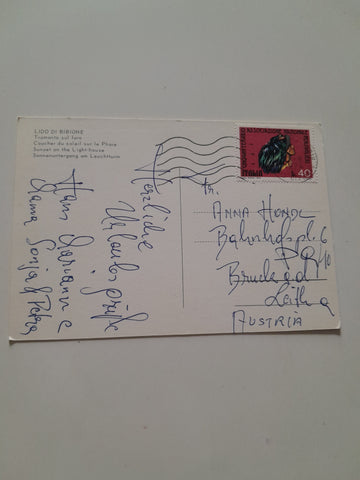 LIDO DI BIBIONE
Tramonto sul faro
Coucher du soleil sur le Phare
Sunset on the Light-house
Sonnenuntergang am Leuchtturm
Herzliche
Urlaubsgrüße
Hans Marianne
Mama Sonja & Petra
40
ANNA HONDL
Bahnhofpl. 6
Bruck a. d.
Leitha
AUSTRIA